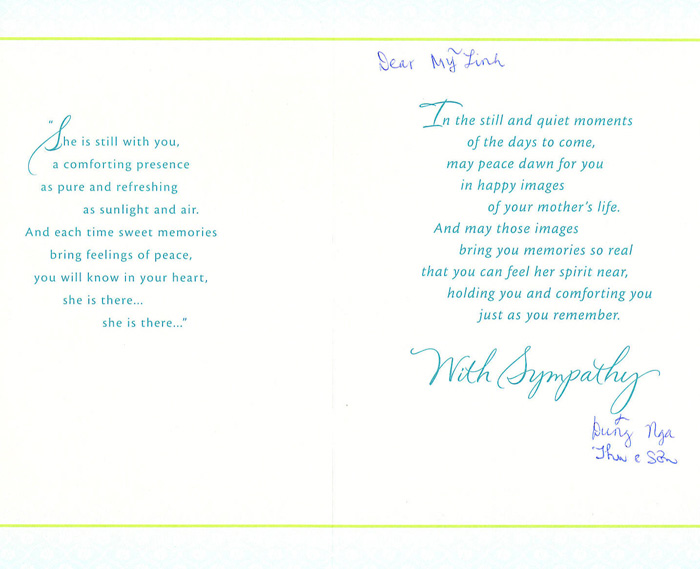 "She is still with you,
a comforting presence
as pure and refreshing
as sunlight and air.
And each time sweet memories
bring feelings of peace,
you will know in your heart,
she is there...
she is there..."
Dear Mỹ Linh
In the still and quiet moments
of the days to come,
may peace dawn for you
in happy images
of your mother's life.
And may those images
bring you memories so real
that you can feel her spirit near,
holding you and comforting you
just as you remember.
With Sympathy
Nga